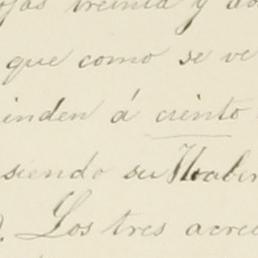 ojas treinta y do
que como se ve
inden á ciento
siendo su Haber
Los tres acree